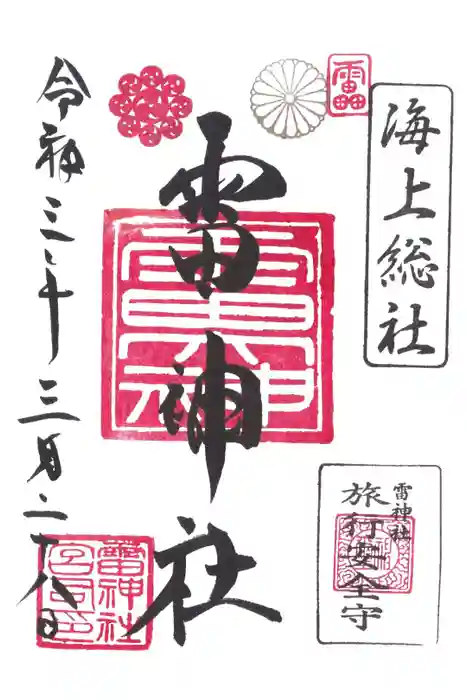 海上総社
雷神社
令和三年三月二十八日
雷神社
旅行安全守
雷神社
宮司印